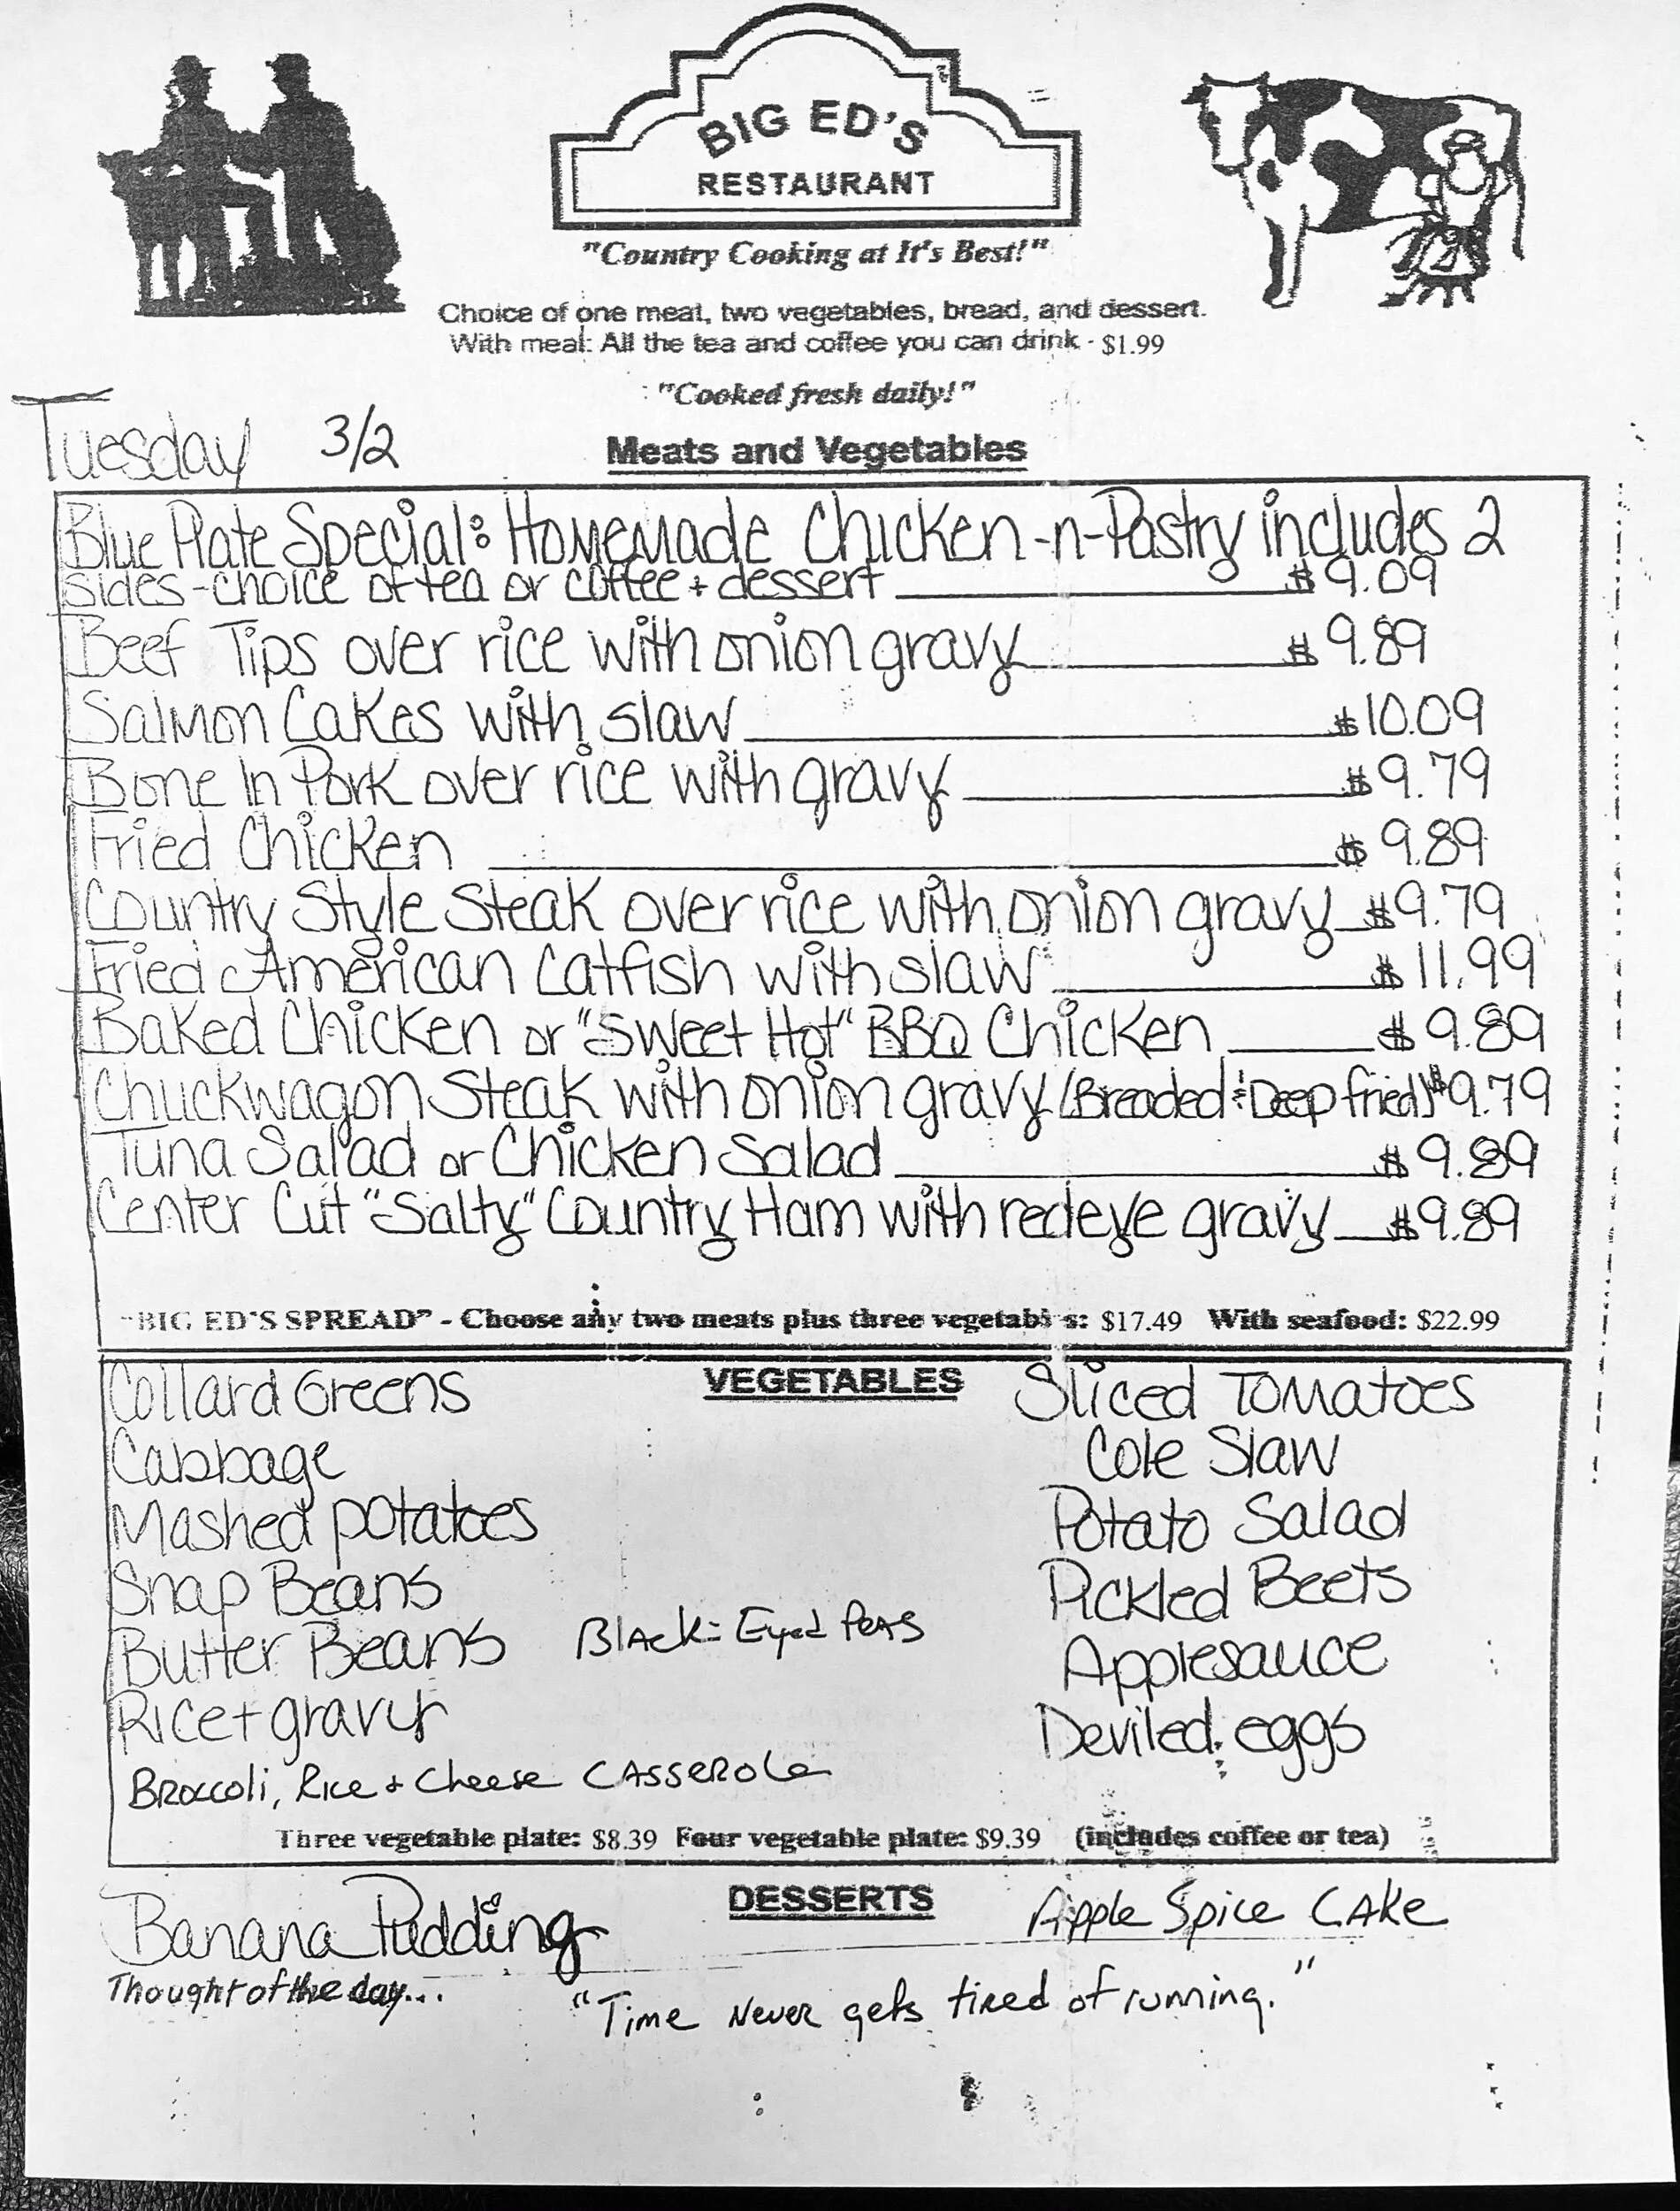 BIG ED'S
RESTAURANT
"Country Cooking at It's Best!"
Choice of one meat, two vegetables, bread, and dessert.
With meal: All the tea and coffee you can drink - $1.99
"Cooked fresh daily!"
Tuesday 3/2
Meats and Vegetables
Blue Plate Special: Homemade Chicken-n-Pastry includes 2
sides-choice of tea or coffee + dessert $9.09
Beef Tips over rice with onion gravy $9.89
Salmon Cakes with slaw $10.09
Bone In Pork over rice with gravy $9.79
Fried Chicken $9.89
Country Style Steak over rice with onion gravy $9.79
Fried American Catfish with slaw $11.99
Baked Chicken or "Sweet Hot" BBQ Chicken $9.89
Chuckwagon Steak with onion gravy (Breaded & Deep fried) $9.79
Tuna Salad or Chicken Salad $9.89
Center Cut "Salty" Country Ham with redeye gravy $9.89
"BIG ED'S SPREAD" - Choose any two meats plus three vegetables: $17.49 With seafood: $22.99
VEGETABLES
Collard Greens
Cabbage
Mashed potatoes
Snap Beans
Butter Beans
Black-Eyed Peas
Rice + gravy
Broccoli, Rice + Cheese Casserole
Sliced Tomatoes
Cole Slaw
Potato Salad
Pickled Beets
Applesauce
Deviled eggs
Three vegetable plate: $8.39 Four vegetable plate: $9.39 (includes coffee or tea)
DESSERTS
Banana Pudding
Apple Spice Cake
Thought of the day...
"Time Never gets tired of running."